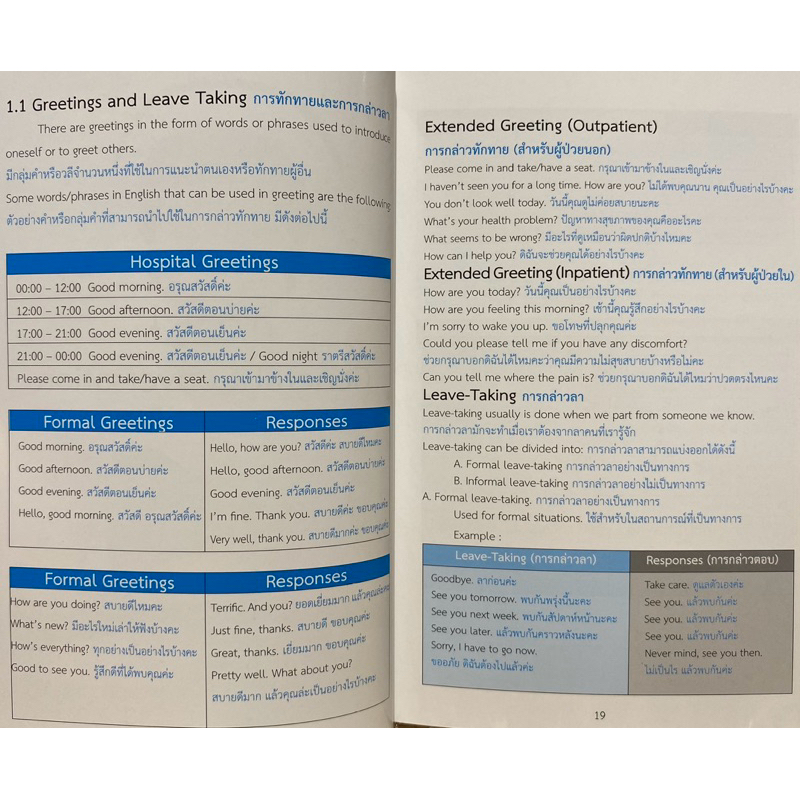 1.1 Greetings and Leave Taking การทักทายและการกล่าวลา
There are greetings in the form of words or phrases used to introduce
oneself or to greet others.
มีกลุ่มคำหรือวลีจำนวนหนึ่งที่ใช้ในการแนะนำตนเองหรือทักทายผู้อื่น
Some words/phrases in English that can be used in greeting are the following
ตัวอย่างคำหรือกลุ่มคำที่สามารถนำไปใช้ในการกล่าวทักทาย มีดังต่อไปนี้
Hospital Greetings
00:00 – 12:00 Good morning. อรุณสวัสดิ์ค่ะ
12:00 – 17:00 Good afternoon. สวัสดีตอนบ่ายค่ะ
17:00 – 21:00 Good evening. สวัสดีตอนเย็นค่ะ
21:00 – 00:00 Good evening. สวัสดีตอนเย็นค่ะ / Good night ราตรีสวัสดิ์ค่ะ
Please come in and take/have a seat. กรุณาเข้ามาข้างในและเชิญนั่งค่ะ
Formal Greetings
Good morning. อรุณสวัสดิ์ค่ะ
Good afternoon. สวัสดีตอนบ่ายค่ะ
Good evening. สวัสดีตอนเย็นค่ะ
Hello, good morning. สวัสดี อรุณสวัสดิ์ค่ะ
Responses
Hello, how are you? สวัสดีค่ะ สบายดีไหมคะ
Hello, good afternoon. สวัสดีตอนบ่ายค่ะ
Good evening. สวัสดีตอนเย็นค่ะ
I'm fine. Thank you. สบายดีค่ะ ขอบคุณค่ะ
Very well, thank you. สบายดีมากค่ะ ขอบคุณค่ะ
Formal Greetings
How are you doing? สบายดีไหมคะ
What's new? มีอะไรใหม่เล่าให้ฟังบ้างคะ
How's everything? ทุกอย่างเป็นอย่างไรบ้างคะ
Good to see you. รู้สึกดีที่ได้พบคุณค่ะ
Responses
Terrific. And you? ยอดเยี่ยมมาก แล้วคุณล่ะคะ
Just fine, thanks. สบายดี ขอบคุณค่ะ
Great, thanks. เยี่ยมมาก ขอบคุณค่ะ
Pretty well. What about you?
สบายดีมาก แล้วคุณล่ะเป็นอย่างไรบ้างคะ
Extended Greeting (Outpatient)
การกล่าวทักทาย (สำหรับผู้ป่วยนอก)
Please come in and take/have a seat. กรุณาเข้ามาข้างในและเชิญนั่งค่ะ
I haven't seen you for a long time. How are you? ไม่ได้พบคุณนาน คุณเป็นอย่างไรบ้างคะ
You don't look well today. วันนี้คุณดูไม่ค่อยสบายนะคะ
What's your health problem? ปัญหาทางสุขภาพของคุณคืออะไรคะ
What seems to be wrong? มีอะไรที่ดูเหมือนว่าผิดปกติบ้างไหมคะ
How can I help you? ดิฉันจะช่วยคุณได้อย่างไรบ้างคะ
Extended Greeting (Inpatient) การกล่าวทักทาย (สำหรับผู้ป่วยใน)
How are you today? วันนี้คุณเป็นอย่างไรบ้างคะ
How are you feeling this morning? เช้านี้คุณรู้สึกอย่างไรบ้างคะ
I'm sorry to wake you up. ขอโทษที่ปลุกคุณค่ะ
Could you please tell me if you have any discomfort?
ช่วยกรุณาบอกดิฉันได้ไหมคะว่าคุณมีความไม่สุขสบายบ้างหรือไม่คะ
Can you tell me where the pain is? ช่วยกรุณาบอกดิฉันได้ไหมว่าปวดตรงไหนคะ
Leave-Taking การกล่าวลา
Leave-taking usually is done when we part from someone we know.
การกล่าวลามักจะทำเมื่อเราต้องจากลาคนที่เรารู้จัก
Leave-taking can be divided into: การกล่าวลาสามารถแบ่งออกได้ดังนี้
A. Formal leave-taking การกล่าวลาอย่างเป็นทางการ
B. Informal leave-taking การกล่าวลาอย่างไม่เป็นทางการ
A. Formal leave-taking. การกล่าวลาอย่างเป็นทางการ
Used for formal situations. ใช้สำหรับในสถานการณ์ที่เป็นทางการ
Example :
Leave-Taking (การกล่าวลา)
Goodbye. ลาก่อนค่ะ
See you tomorrow. พบกันพรุ่งนี้นะคะ
See you next week. พบกันสัปดาห์หน้านะคะ
See you later. แล้วพบกันคราวหลังนะคะ
Sorry, I have to go now.
ขออภัย ดิฉันต้องไปแล้วค่ะ
Responses (การกล่าวตอบ)
Take care. ดูแลตัวเองค่ะ
See you. แล้วพบกันค่ะ
See you. แล้วพบกันค่ะ
See you. แล้วพบกันค่ะ
Never mind, see you then.
ไม่เป็นไร แล้วพบกันค่ะ
19